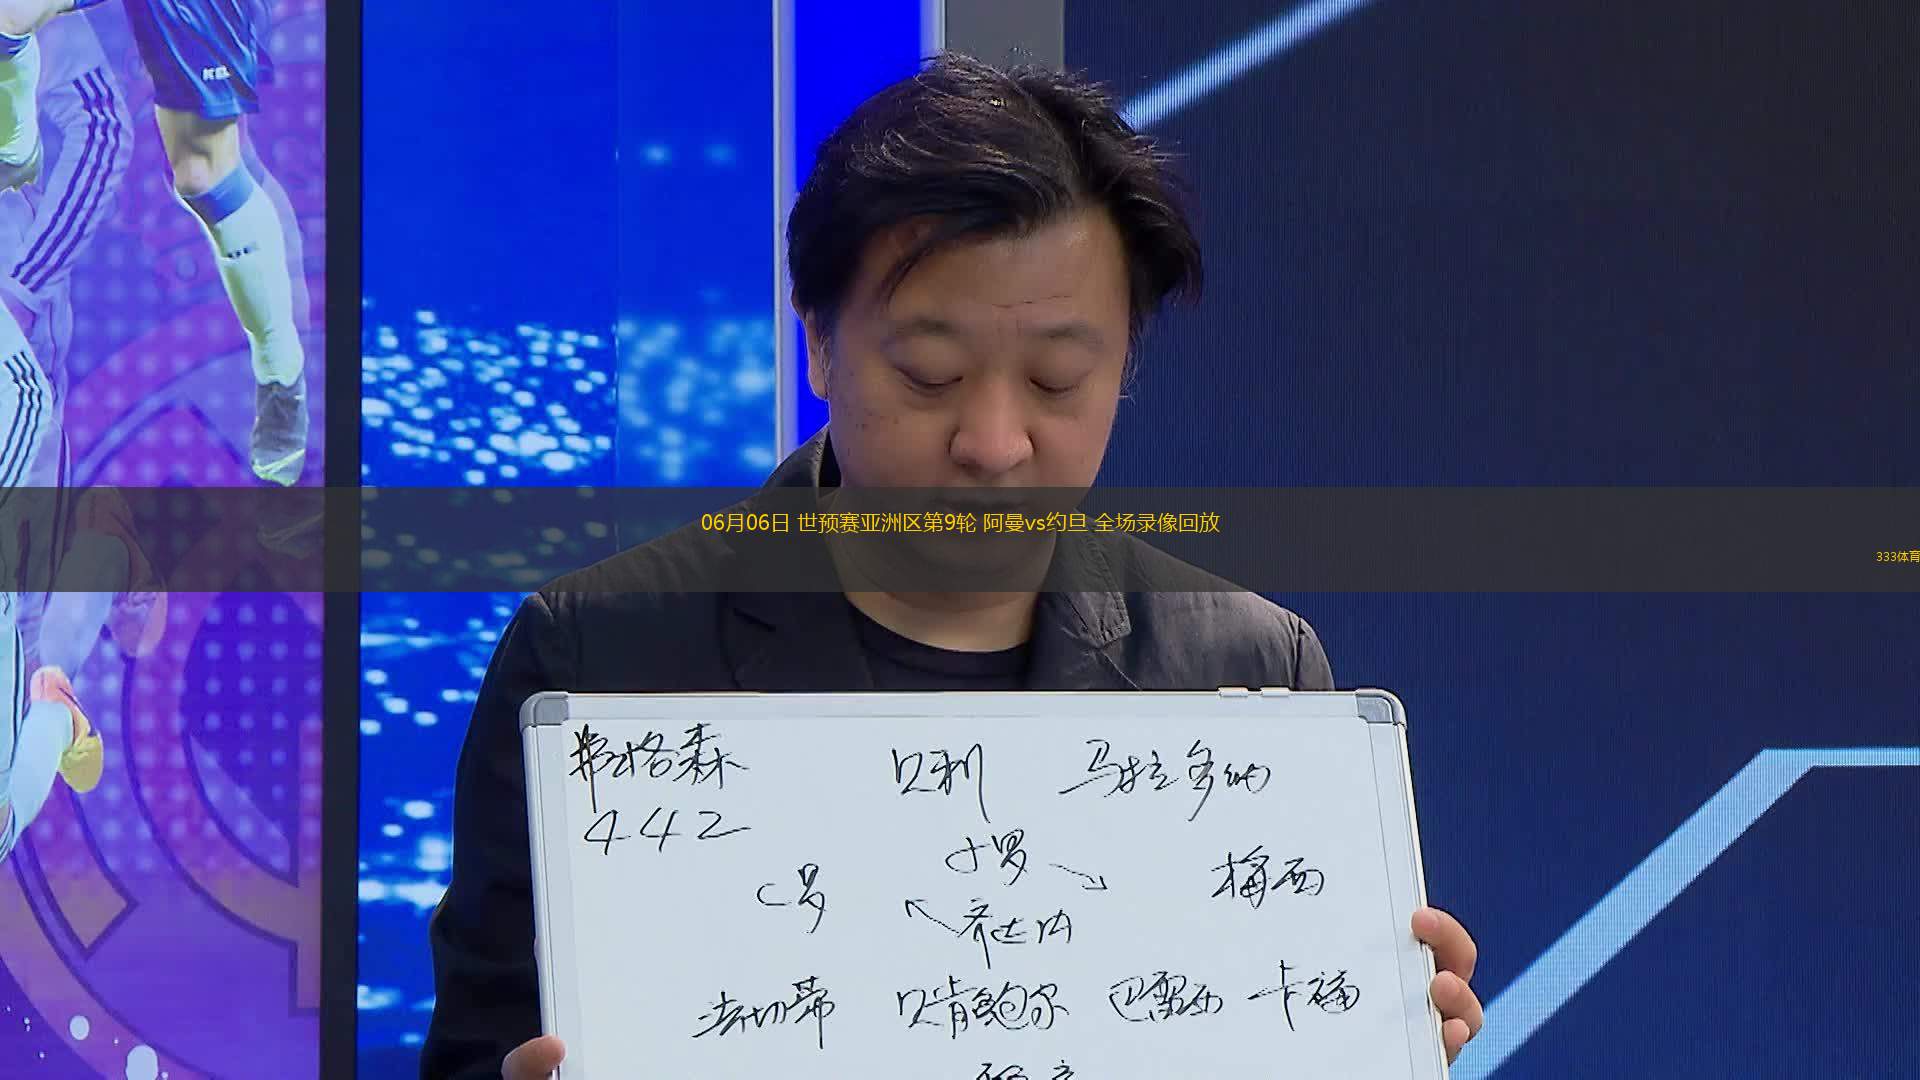 06月06日 世预赛亚洲区第9轮 阿曼vs约旦 全场录像回放
333体育
弗格森 贝利 马拉多纳
442
小罗
C罗 梅西
齐达内
法切蒂 贝肯鲍尔 巴雷西 卡福